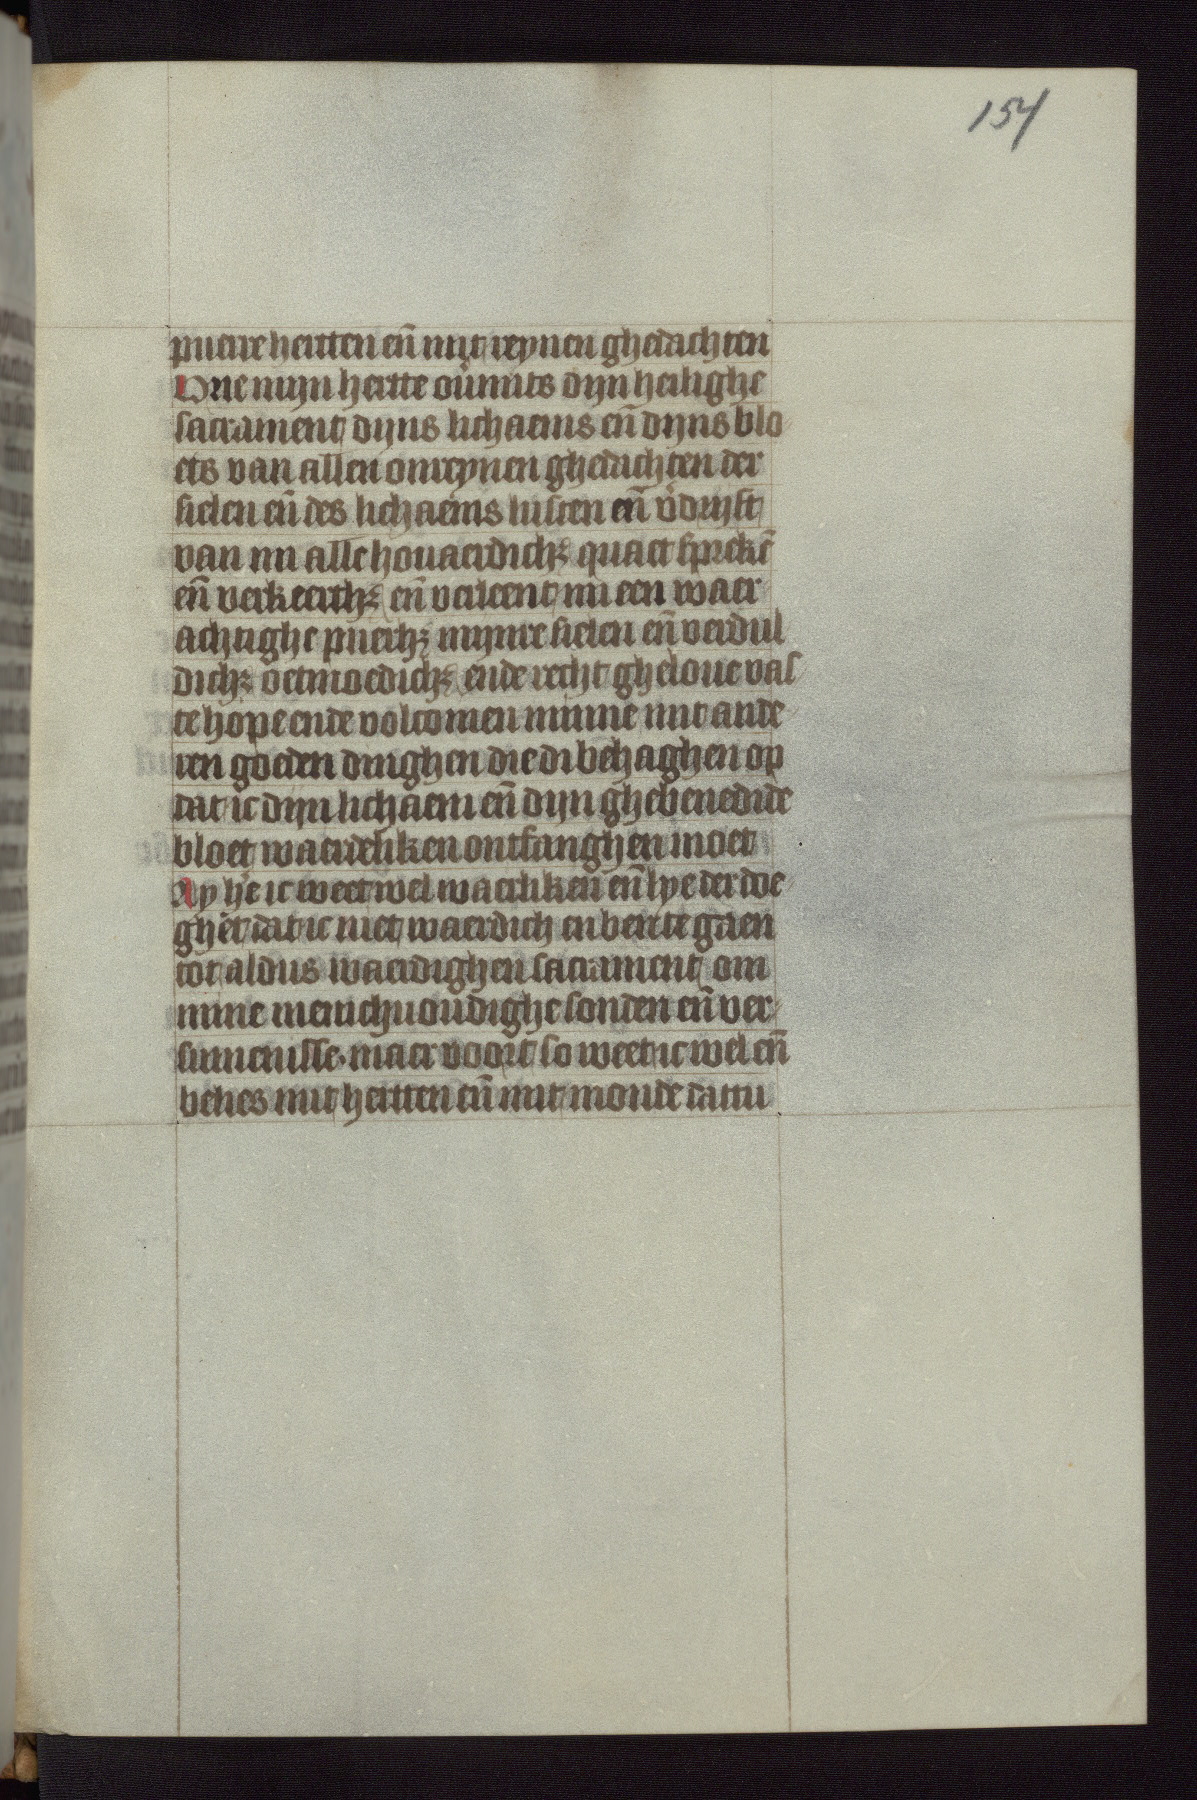 154
puerre hertten en̄ mit reynen ghedachten
Vrie mijn hertte ou̇mits dijn heilighe
sacrament dijns lichaems en̄ dijns blo
ets van allen onreynen ghedachten der
sielen en̄ des lichaems lusten en̄ v̇drijft
van mi alle houaerdichꝫ quaet sprekē
en̄ verkeerthꝫ en̄ verleent mi een waer
achtighe puerhꝫ mijnre sielen en̄ verdul
dichꝫ oetmoedichꝫ ende recht gheloue vas
te hope ende volcomen minne mit ande
ren goeden dinghen die di behaghen op
dat ic dijn lichaem en̄ dijn ghebenedide
bloet waerdeliken ontfanghen moet
Ay he ic weet wel waerliken en̄ lye der doe
ghet dat ic niet waerdich en ben te gaen
tot aldus waerdighen sacrament om
mine menichuoudighe sonden en̄ ver
sumenisse. maer voort so weet ic wel en̄
belies mit hertten en̄ mit monde dattu